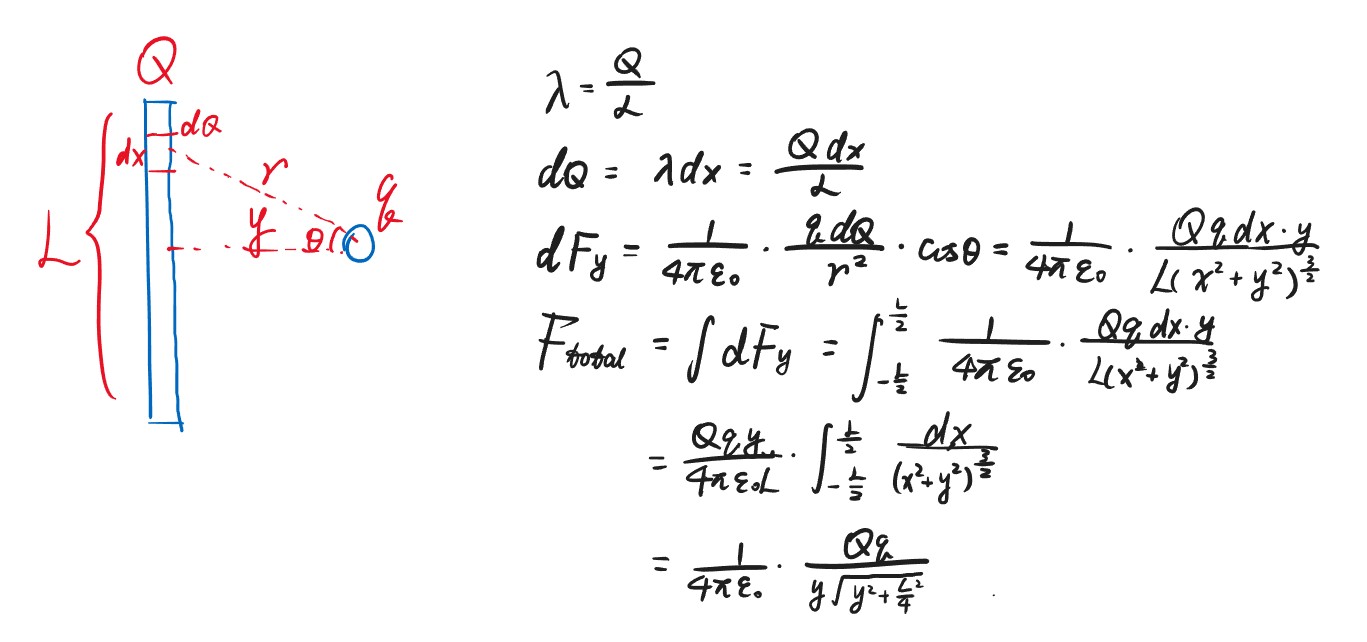 Q
dQ
dx
r
q
y
θ
L
λ = Q/L
dQ = λdx = Q dx/L
dF_y = 1/4πε₀ · q dQ/r² · cosθ = 1/4πε₀ · Qq dx·y/L(x²+y²)^(3/2)
F_total = ∫dF_y = ∫_{-L/2}^{L/2} 1/4πε₀ · Qq dx·y/L(x²+y²)^(3/2)
= Qqy/4πε₀L · ∫_{-L/2}^{L/2} dx/(x²+y²)^(3/2)
= 1/4πε₀ · Qq/y√(y²+L²/4)